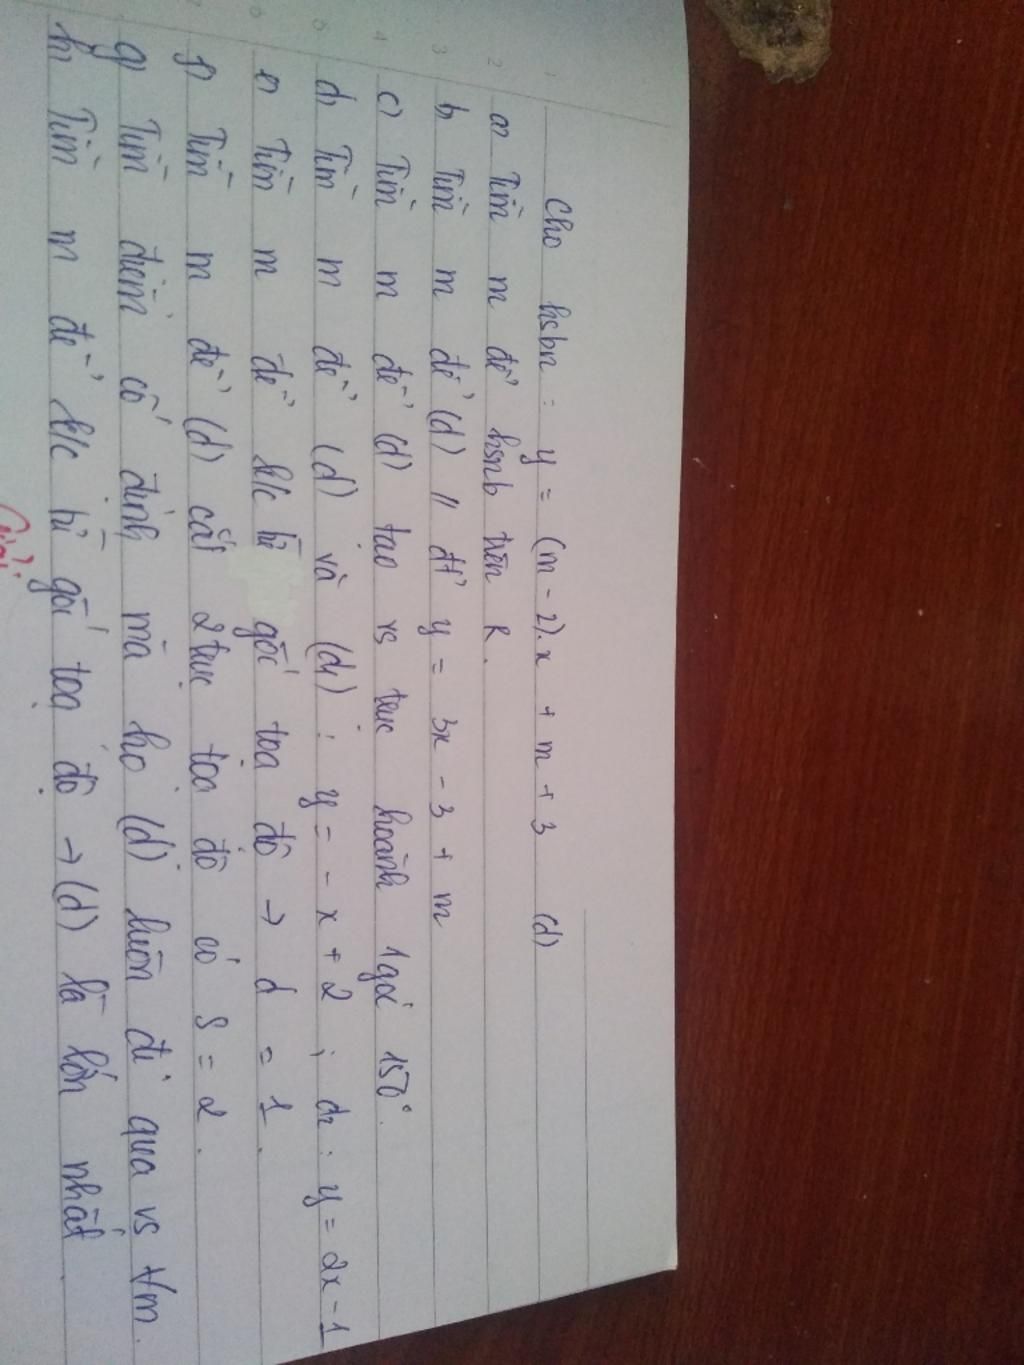 Cho hsbn : y = (m - 2).x + m + 3 (d)
a, Tìm m để hsnb trên R.
b, Tìm m để (d) // đt y = 3x - 3 + m
c, Tìm m để (d) tạo vs trục hoành 1 góc 150°.
d, Tìm m để (d) và (d1) : y = - x + 2 ; d2 : y = 2x - 1
e, Tìm m để k/c từ gốc tọa độ → d = 1.
f, Tìm m để (d) cắt 2 trục tọa độ có S = 2.
g, Tìm điểm cố định mà họ (d) luôn đi qua vs ∀m.
h, Tìm m để k/c từ gốc tọa độ → (d) là lớn nhất.